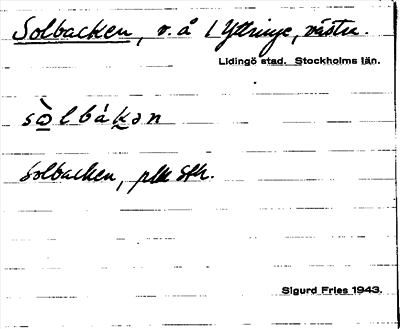 Solbacken, v. å 1 Yttringe, västra.
Lidingö stad. Stockholms län.
sòlbákən
Solbacken, sthr.
Sigurd Fries 1943.